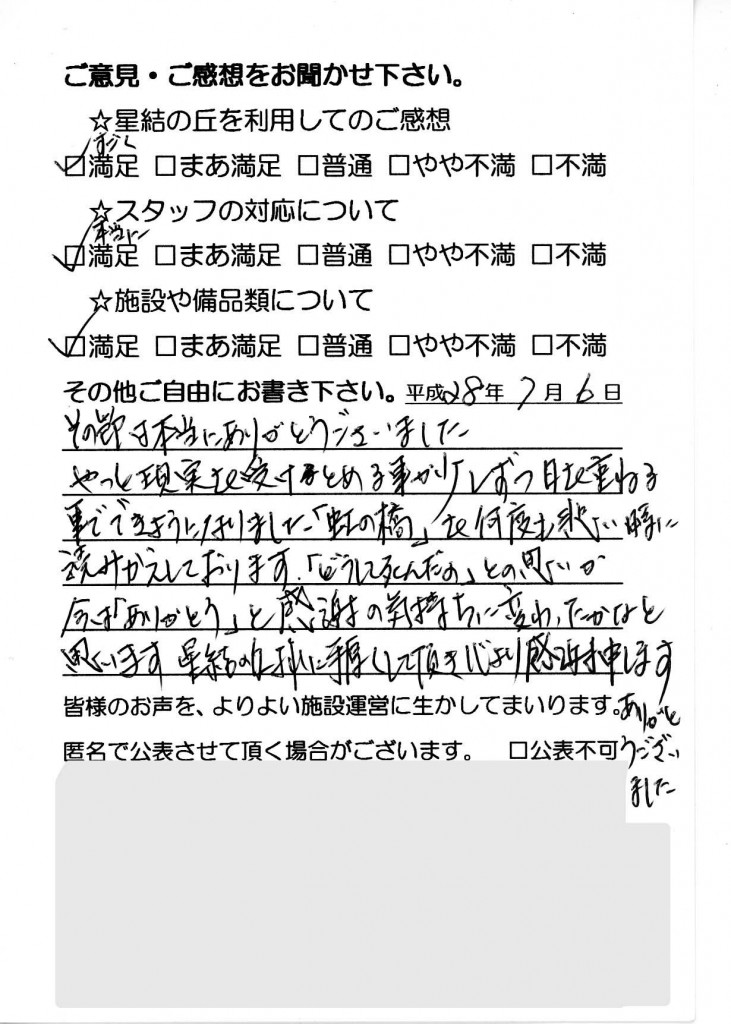 ご意見・ご感想をお聞かせ下さい。
☆星結の丘を利用してのご感想
すごく
☐満足 ☐まあ満足 ☐普通 ☐やや不満 ☐不満
☆スタッフの対応について
本当に
☐満足 ☐まあ満足 ☐普通 ☐やや不満 ☐不満
☆施設や備品類について
☐満足 ☐まあ満足 ☐普通 ☐やや不満 ☐不満
その他ご自由にお書き下さい。平成28年7月6日
その節は本当にありがとうございました
やっと現実を受けとめる事が少しずつ日を重ねる
事でできようになりました「虹の橋」を何度も悲しい時に
読みかえしております。「どうして死んだの」との思いが
今は「ありがとう」と感謝の気持ちに変わったかなと
思います 星結の丘様に手厚くして頂き心より感謝申します
皆様のお声を、よりよい施設運営に生かしてまいります。
匿名で公表させて頂く場合がございます。 ☐公表不可
ありがと
うござい
ました